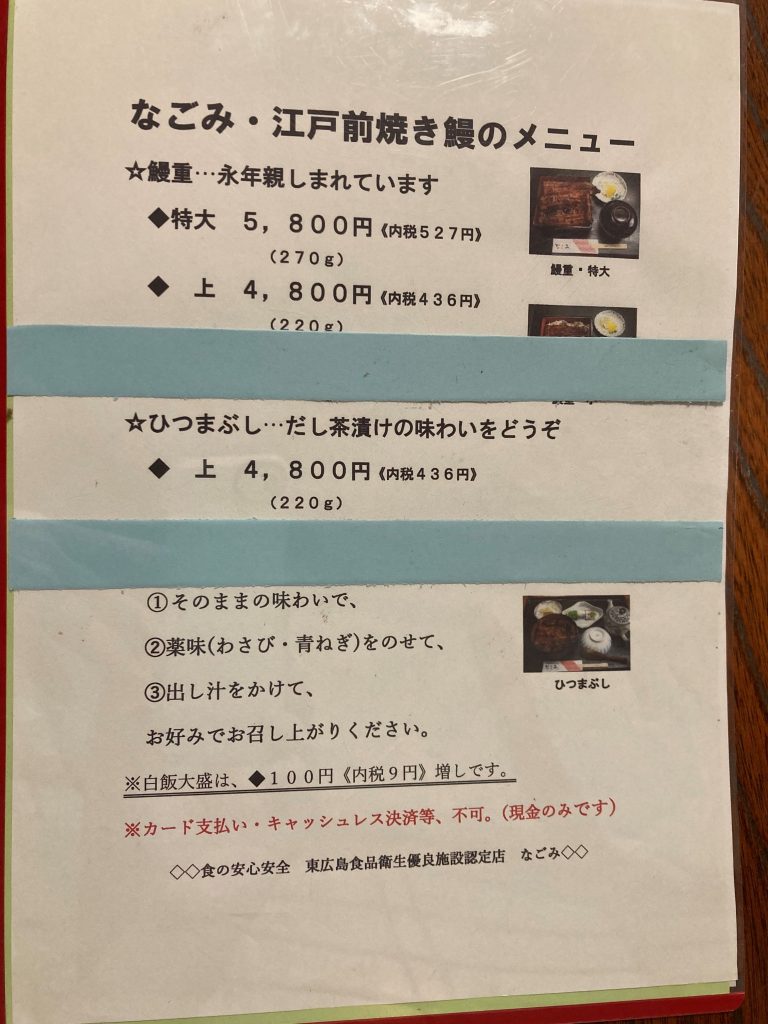 なごみ・江戸前焼き鰻のメニュー
☆鰻重…永年親しまれています
◆特大　５，８００円《内税５２７円》
（２７０ｇ）
鰻重・特大
◆　上　４，８００円《内税４３６円》
（２２０ｇ）
☆ひつまぶし…だし茶漬けの味わいをどうぞ
◆　上　４，８００円《内税４３６円》
（２２０ｇ）
①そのままの味わいで、
②薬味(わさび・青ねぎ)をのせて、
③出し汁をかけて、
ひつまぶし
お好みでお召し上がりください。
※白飯大盛は、◆１００円《内税９円》増しです。
※カード支払い・キャッシュレス決済等、不可。（現金のみです）
◇◇食の安心安全　東広島食品衛生優良施設認定店　なごみ◇◇